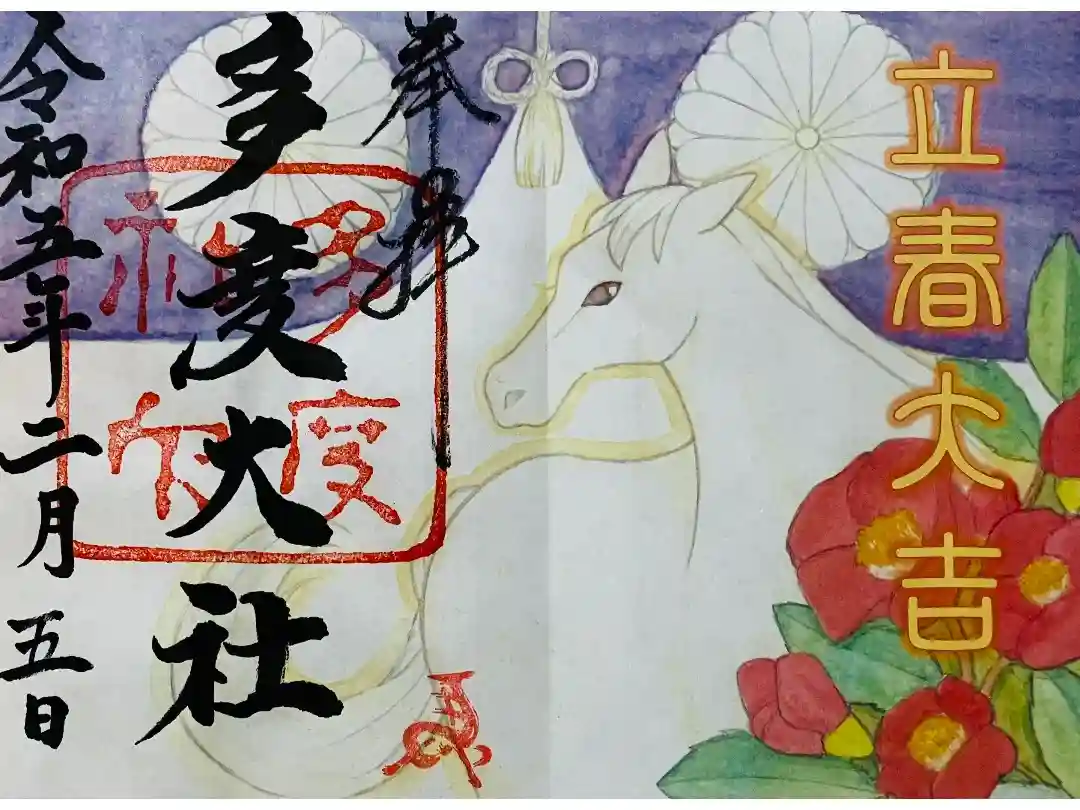 立春大吉
奉拝
多度大社
令和五年二月五日